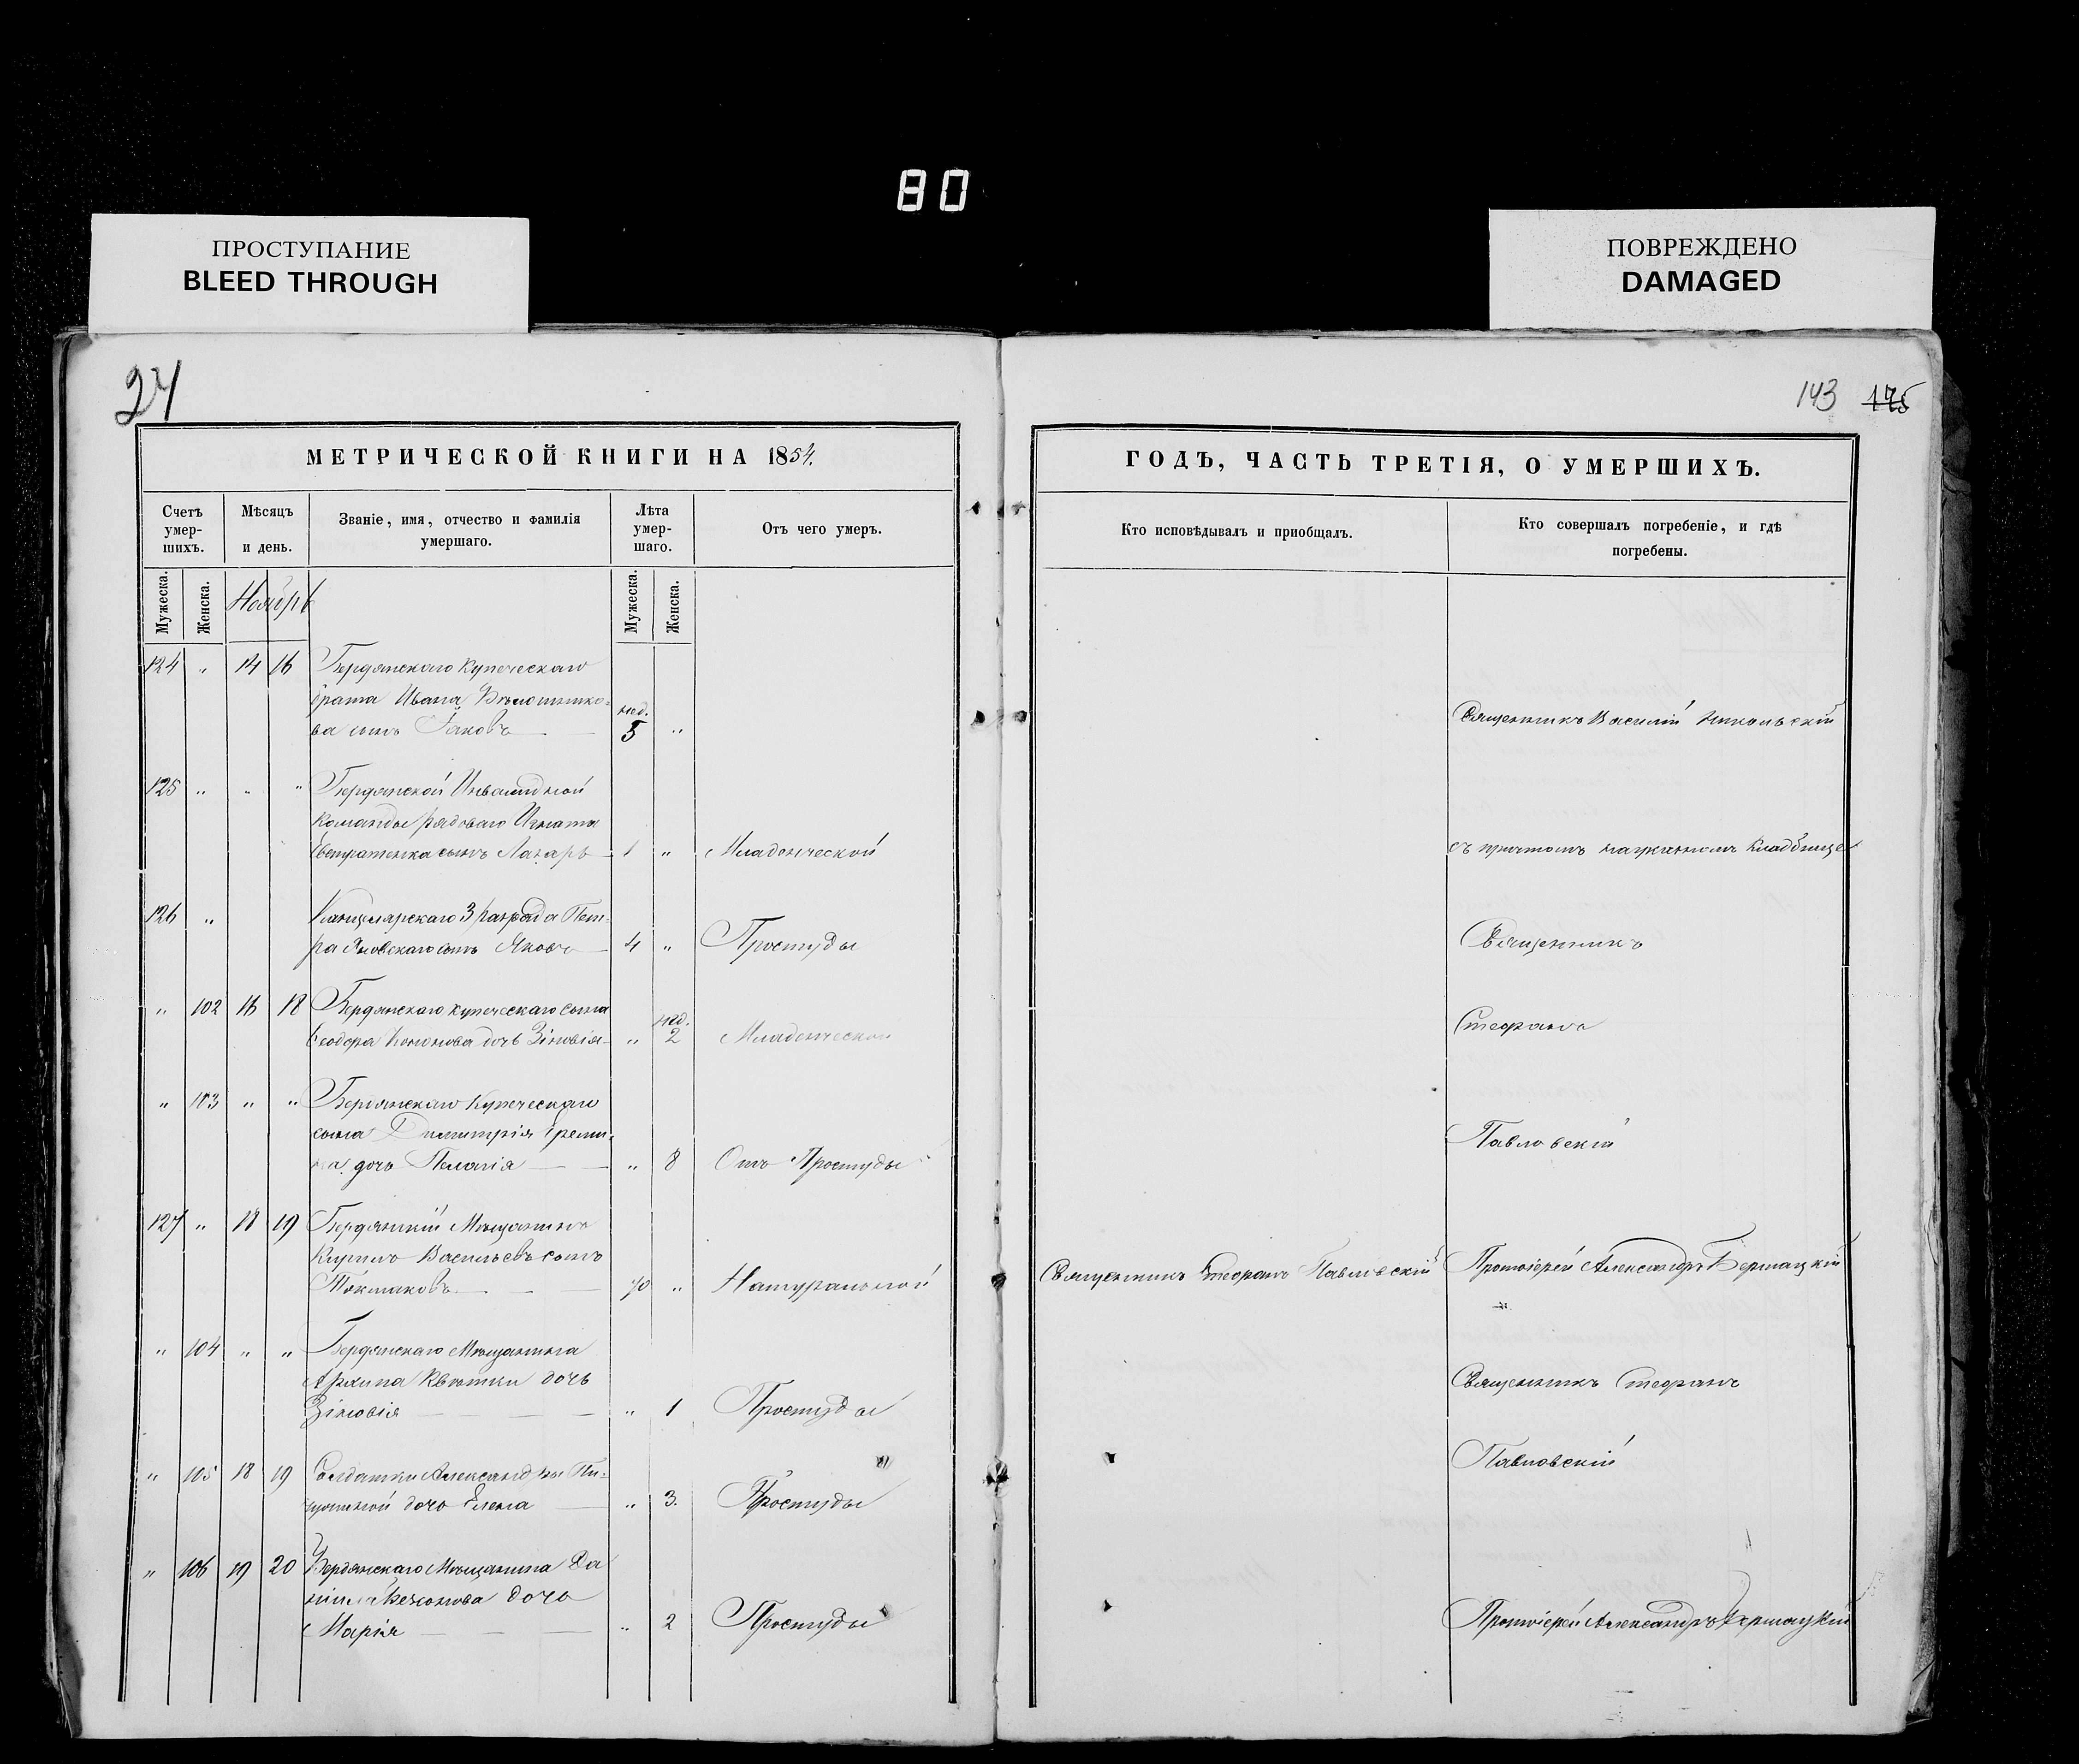 80
ПРОСТУПАНИЕ
BLEED THROUGH
ПОВРЕЖДЕНО
DAMAGED
24
143 175
МЕТРИЧЕСКОЙ КНИГИ НА 1854.
Счетъ умер-шихъ.
Мѣсяцъ и день.
Званіе, имя, отчество и фамилія умершаго.
Лѣта умер-шаго.
Отъ чего умеръ.
Мужеска. Женска. Ноябрь Мужеска. Женска.
124 " 14 16 Бердянскаго купеческаго
брата Ивана
ва сынъ Іаковъ нед. 5 "
125 " " " Бердянской Инвалидной
команды рядоваго Игната
сынъ Лазарь 1 " Младенческой
126 " Канцелярскаго 3 разряда Пет-
ра сынъ Яковъ 4 " Простуды
" 102 16 18 Бердянскаго купеческаго сына
Ѳеодора Кононова дочь Зіновія " нед. 2 Младенческой
" 103 " " Бердянскаго Купеческаго
сына Димитрія
дочь Пелагія " 8 Отъ Простуды
127 " 18 19 Бердянскій Мѣщанинъ
Кирилъ Васильевъ сынъ
Токмаковъ 70 " Натуральной
" 104 " " Бердянскаго Мѣщанина
Архипа Квѣтки дочь
Зіновія " 1 Простуды
" 105 18 19 Солдатки Александры
дочь Елена " 3. Простуды
" 106 19 20 Бердянскаго Мѣщанина Да
дочь
Марія " 2 Простуды
ГОДЪ, ЧАСТЬ ТРЕТІЯ, О УМЕРШИХЪ.
Кто исповѣдывалъ и пріобщалъ.
Кто совершалъ погребеніе, и гдѣ погребены.
Священникъ Василій Никольскій
съ причтомъ кладбище
Священникъ
Стефанъ
Павловскій
Священникъ Стефанъ Павловскій Протоіерей Александръ
Священникъ Стефанъ
Павловскій
Протоіерей Александръ